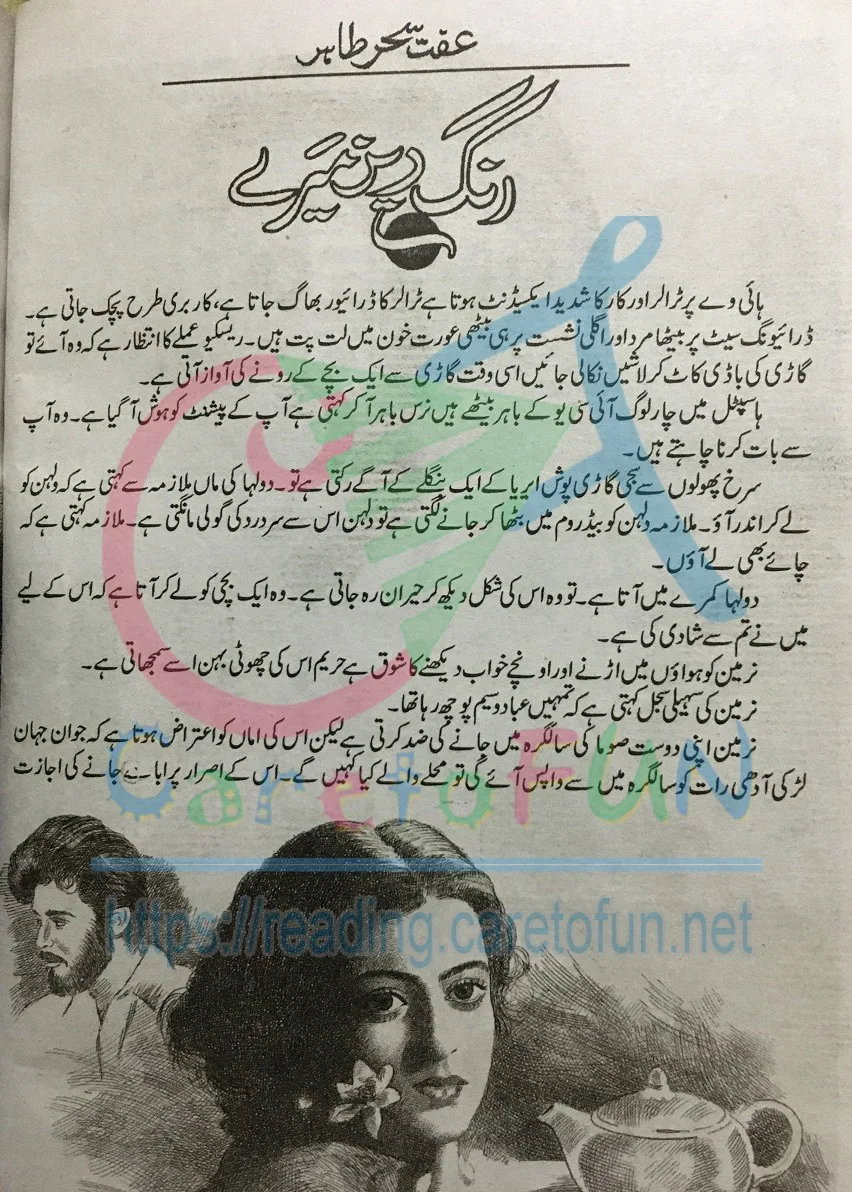 عفت سحر طاہر
رنگ ریز میرے
ہائی وے پر ٹرالر اور کار کا شدید ایکسیڈنٹ ہوتا ہے ٹرالر کا ڈرائیور بھاگ جاتا ہے، کار بری طرح پچک جاتی ہے۔
ڈرائیونگ سیٹ پر بیٹھا مرد اور اگلی نشست پر ہی بیٹھی عورت خون میں لت پت ہیں۔ ریسکیو عملے کا انتظار ہے کہ وہ آئے تو
گاڑی کی باڈی کاٹ کر لاشیں نکالی جائیں اسی وقت گاڑی سے ایک بچے کے رونے کی آواز آتی ہے۔
ہاسپٹل میں چار لوگ آئی سی یو کے باہر بیٹھے ہیں نرس باہر آکر کہتی ہے آپ کے پیشنٹ کو ہوش آگیا ہے۔ وہ آپ
سے بات کرنا چاہتے ہیں۔
سرخ پھولوں سے سجی گاڑی پوش ایریا کے ایک بنگلے کے آگے رکتی ہے تو۔ دولہا کی ماں ملازمہ سے کہتی ہے کہ دلہن کو
لے کر اندر آؤ۔ ملازمہ دلہن کو بیڈروم میں بٹھا کر جانے لگتی ہے تو دلہن اس سے سردرد کی گولی مانگتی ہے۔ ملازمہ کہتی ہے کہ
چائے بھی لے آؤں۔
دولہا کمرے میں آتا ہے۔ تو وہ اس کی شکل دیکھ کر حیران رہ جاتی ہے۔ وہ ایک بچی کو لے کر آتا ہے کہ اس کے لیے
میں نے تم سے شادی کی ہے۔
نرمین کو ہواؤں میں اڑنے اور اونچے خواب دیکھنے کا شوق ہے حریم اس کی چھوٹی بہن اسے سمجھاتی ہے۔
نرمین کی سہیلی سجل کہتی ہے کہ تمہیں عباد وسیم پوچھ رہا تھا۔
نرمین اپنی دوست صوما کی سالگرہ میں جانے کی ضد کرتی ہے لیکن اس کی اماں کو اعتراض ہوتا ہے کہ جوان جہان
لڑکی آدھی رات کو سالگرہ میں سے واپس آئے گی تو محلے والے کیا کہیں گے۔ اس کے اصرار پر ابا سے جانے کی اجازت
CaretoFUN
https://reading.caretofun.net